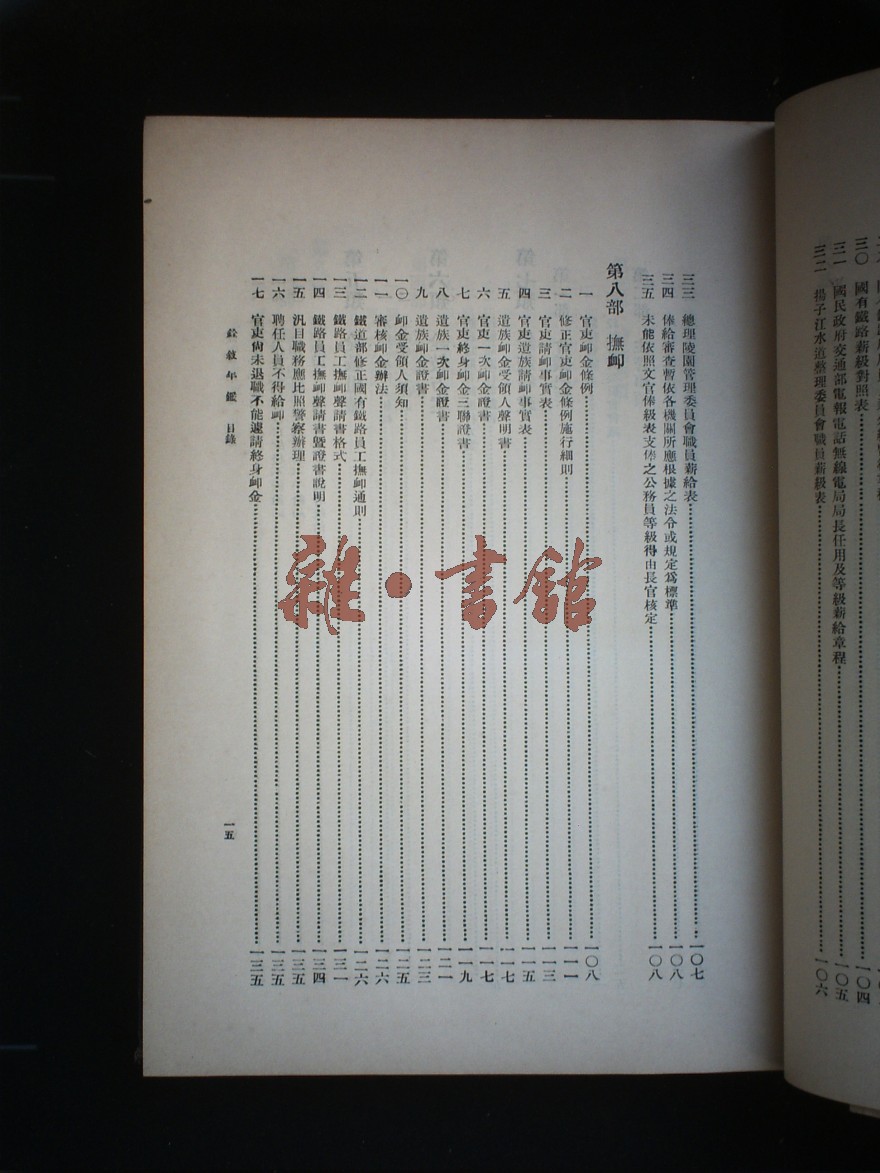 三〇 國有鐵路薪級對照表……一〇四
三一 國民政府交通部電報電話無線電局局長任用及等級薪給章程……一〇五
三二 揚子江水道整理委員會職員薪級表……一〇六
三三 總理陵園管理委員會職員薪給表……一〇七
三四 俸給審查暫依各機關所應根據之法令或規定爲標準……一〇八
三五 未能依照文官俸級表支俸之公務員等級得由長官核定……一〇八
第八部 撫卹
一 官吏卹金條例……一〇八
二 修正官吏卹金條例施行細則……一一一
三 官吏請卹事實表……一一三
四 官吏遺族請卹事實表……一一五
五 遺族卹金受領人聲明書……一一七
六 官吏一次卹金證書……一一七
七 官吏終身卹金三聯證書……一一九
八 遺族一次卹金證書……一二一
九 遺族卹金證書……一二三
一〇 卹金受領人須知……一二五
一一 審核卹金辦法……一二六
一二 鐵道部修正國有鐵路員工撫卹通則……一二六
一三 鐵路員工撫卹聲請書格式……一三一
一四 鐵路員工撫卹聲請書暨證書說明……一三四
一五 汛目職務應比照警察辦理……一三五
一六 聘任人員不得給卹……一三五
一七 官吏尙未退職不能遽請終身卹金……一三五
銓敘年鑑 目錄
一五
雜·書館